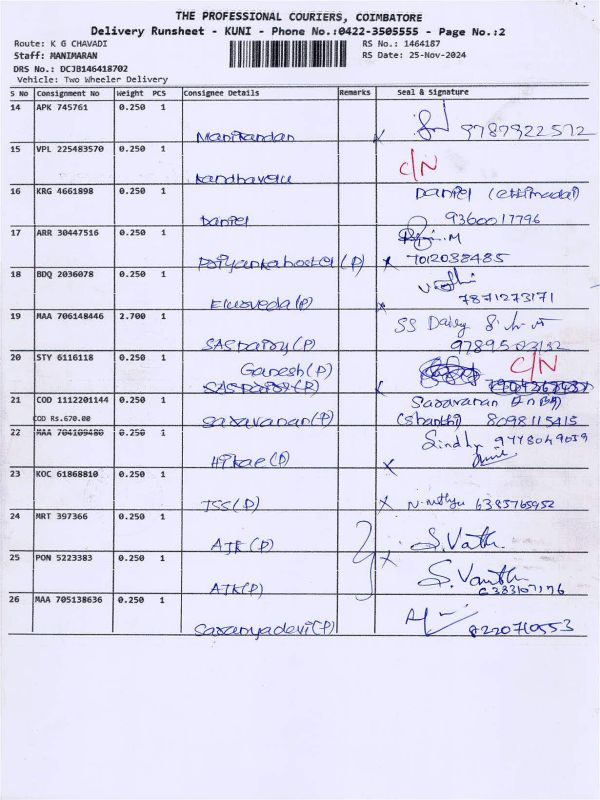 THE PROFESSIONAL COURIERS, COIMBATORE
Delivery Runsheet - KUNI - Phone No.:0422-3505555 - Page No.:2
Route: K G CHAVADI
RS No.: 1464187
Staff: MANIMARAN
RS Date: 25-Nov-2024
DRS No.: DCJB146418702
Vehicle: Two Wheeler Delivery
S No Consignment No Weight PCS Consignee Details Remarks Seal & Signature
14 APK 745761 0.250 1
Manikandan 9787922572
15 VPL 225483570 0.250 1 C/N
Kandhavelu
16 KRG 4661898 0.250 1 Daniel (ettimadai)
Daniel 9360017796
17 ARR 30447516 0.250 1
Priyanka hostel (P) 7012038485
18 BDQ 2036078 0.250 1
(P) 7871273171
19 MAA 706148446 2.700 1 SS Daisy
(P)
20 STY 6116118 0.250 1 Ganesh (P) C/N
21 COD 1112201144 0.250 1 Saravanan
COD Rs.670.00 Saravanan (P) (Shanthi) 8098115415
22 MAA 704109480 0.250 1 Sindhu
(P)
23 KOC 61868810 0.250 1
JSS (P) 6385765952
24 MRT 397366 0.250 1
AJK (P) S. Vath
25 PON 5223383 0.250 1
AJK (P) S. Vanith
26 MAA 705138636 0.250 1
Saranyadevi (P) 8220710553